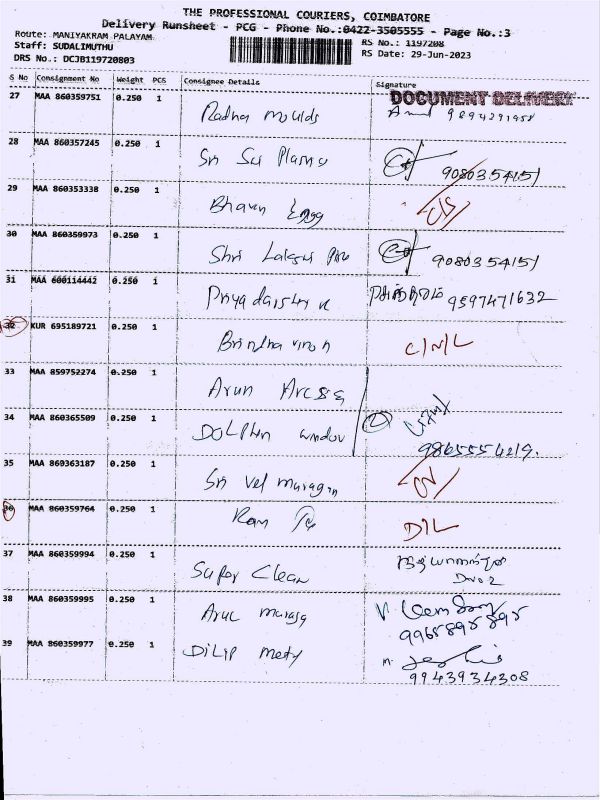 THE PROFESSIONAL COURIERS, COIMBATORE
Delivery Runsheet - PCG - Phone No.:0422-3505555 - Page No.:3
Route: MANIYAKRAM PALAYAM
RS No.: 1197208
Staff: SUDALIMUTHU
RS Date: 29-Jun-2023
DRS No.: DCJB119720803
S No Consignment No Weight PCS Consignee Details Signature
DOCUMENT DELIVERY
27 MAA 860359751 0.250 1 Radha moulds 9894291958
28 MAA 860357245 0.250 1 Sri Sai 9080354151
29 MAA 860353338 0.250 1 Bhavan Engg
30 MAA 860359973 0.250 1 Shri 9080354151
31 MAA 600114442 0.250 1 Priyadarshini 9597471632
32 KUR 695189721 0.250 1 C/N/L
33 MAA 859752274 0.250 1 Arun
34 MAA 860365509 0.250 1 DOLPHIN window 9865554219.
35 MAA 860363187 0.250 1 Sri vel murugan
36 MAA 860359764 0.250 1 Ram D/L
37 MAA 860359994 0.250 1 Super Clean
38 MAA 860359995 0.250 1 Arul 9965895895
39 MAA 860359977 0.250 1 DiLip 9943934308